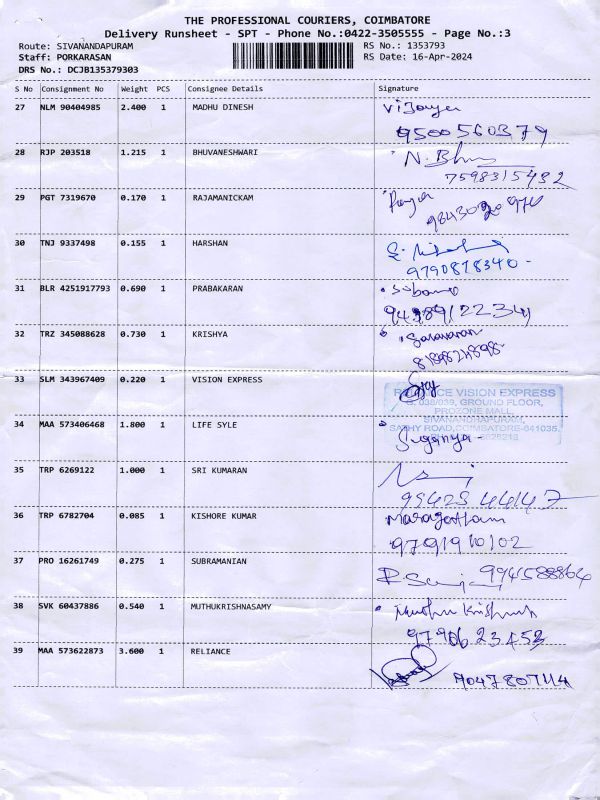 THE PROFESSIONAL COURIERS, COIMBATORE
Delivery Runsheet - SPT - Phone No.:0422-3505555 - Page No.:3
Route: SIVANANDAPURAM RS No.: 1353793
Staff: PORKARASAN RS Date: 16-Apr-2024
DRS No.: DCJB135379303
S No Consignment No Weight PCS Consignee Details Signature
27 NLM 90404985 2.400 1 MADHU DINESH Vijaya
9500560379
28 RJP 203518 1.215 1 BHUVANESHWARI N. Bhu
7598315432
29 PGT 7319670 0.170 1 RAJAMANICKAM
30 TNJ 9337498 0.155 1 HARSHAN
9790878340-
31 BLR 4251917793 0.690 1 PRABAKARAN
32 TRZ 345088628 0.730 1 KRISHYA Saravanan
33 SLM 343967409 0.220 1 VISION EXPRESS
VISION EXPRESS
GROUND FLOOR,
PROZONE MALL,
SIVANANDHAPURAM,
SATHY ROAD, COIMBATORE-641035.
34 MAA 573406468 1.800 1 LIFE SYLE Suganya-
35 TRP 6269122 1.000 1 SRI KUMARAN
99423 44147
36 TRP 6782704 0.085 1 KISHORE KUMAR Maragatham
9791910102
37 PRO 16261749 0.275 1 SUBRAMANIAN 9941588864
38 SVK 60437886 0.540 1 MUTHUKRISHNASAMY
97906 23453
39 MAA 573622873 3.600 1 RELIANCE 9047807114